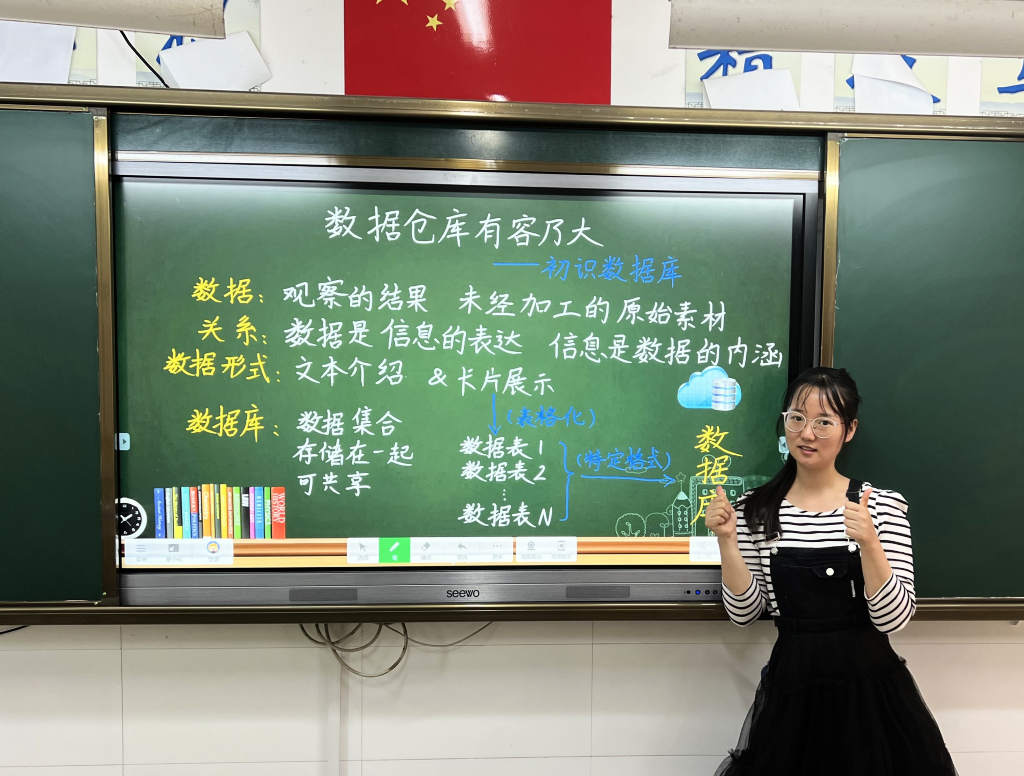 数据仓库有容乃大
——初识数据库
数据：观察的结果 未经加工的原始素材
关系：数据是信息的表达 信息是数据的内涵
数据形式：文本介绍 &卡片展示
(表格化)
数据库：数据集合
存储在一起
可共享
数据表1
数据表2
⋮
数据表N
(特定格式)
数据库
WORLD HISTORY
seewo